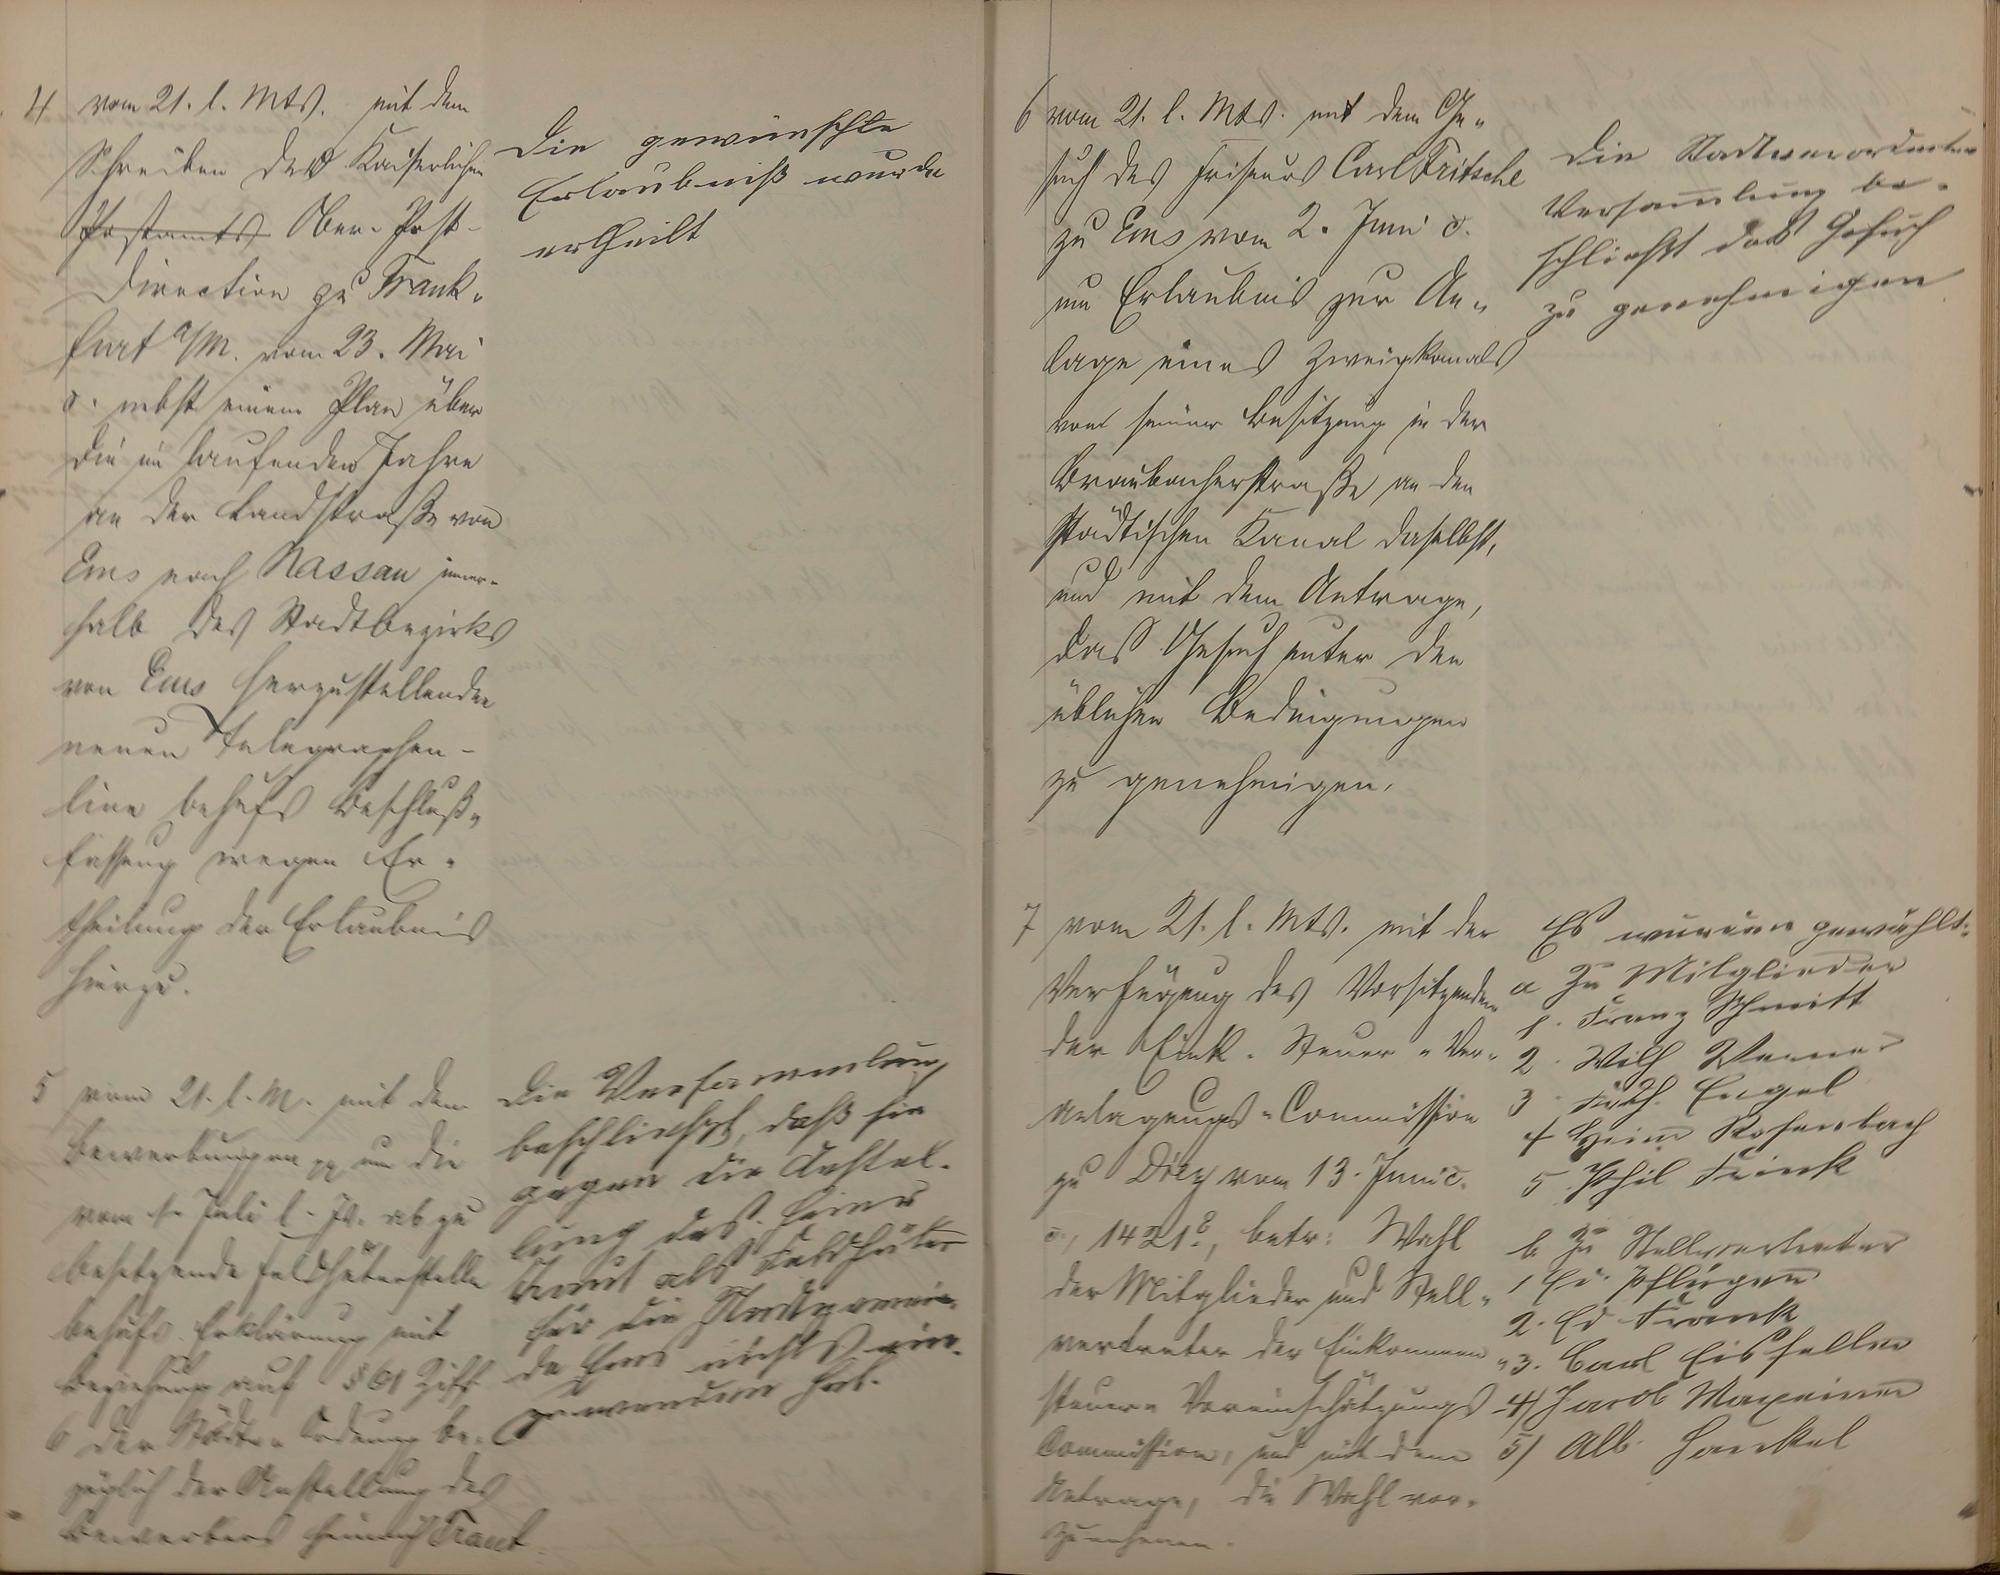 4 vom 21. l. Mts. mit dem
Schreiben des Kaiserlichen
Postamts Ober-Post-
Direction zu Frank-
furt a/M. vom 23. Mai
c. nebst einem Plan über
die im laufenden Jahre
an der Landstraße von
Ems nach Nassau inner-
halb des Stadtbezirks
von Ems herzustellenden
neuen Telegraphen-
linie behufs Beschluß-
fassung wegen Er-
theilung der Erlaubnis
hierzu.
Die gewünschte
Erlaubniß wurde
ertheilt
5 vom 21. l. M. mit dem
Bewerbungen um die
vom 1. Juli l. Js. ab zu
besetzende Feldhüterstelle
behufs Erklärung mit
Beziehung auf § 61 Ziff.
6 der Städte-Ordnung be-
züglich der Anstellung des
Bewerbers Heinrich
Die Versammlung
beschließt, daß sie
gegen die Anstel-
lung des Heinr
als Feldhüter
für die Stadtgemein-
de Ems nichts ein-
zuwenden hat.
6 vom 21. l. Mts. mit dem Ge-
such des Friseurs Carl Fritsche
zu Ems vom 2. Juni c.
um Erlaubnis zur An-
lage eines Zweigkanals
von seiner Besitzung in der
Braubacherstraße an den
städtischen Kanal daselbst,
und mit dem Antrage,
das Gesuch unter den
üblichen Bedingungen
zu genehmigen.
Die Stadtverordneten
Versammlung be-
schließt das Gesuch
zu genehmigen
7 vom 21. l. Mts. mit der
Verfügung des Vorsitzenden
der Eink. Steuer-Ver-
anlagungs-Commission
zu Diez vom 13. Juni c.
1421, betr: Wahl
der Mitglieder und Stell-
vertreter der Einkommen-
steuer-Voreinschätzungs
Commission, und mit dem
Antrage, die Wahl vor-
zunehmen.
Es wurden gewählt:
a Zu Mitglieder
1. Franz Schmitt
2. Wilh
3. Engel
4 Heinr Rosenbach
5 Phil
b Zu Stellvertreter
1 Ed.
2. Ed Franck
3. Carl Eisfeller
4) Jacob Maxeiner
5) Alb. Henckel